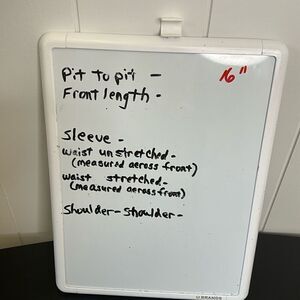 Pit to pit - 16"
Front length -
Sleeve -
waist unstretched -
(measured across front)
waist stretched -
(measured across front)
Shoulder-Shoulder -
U BRANDS